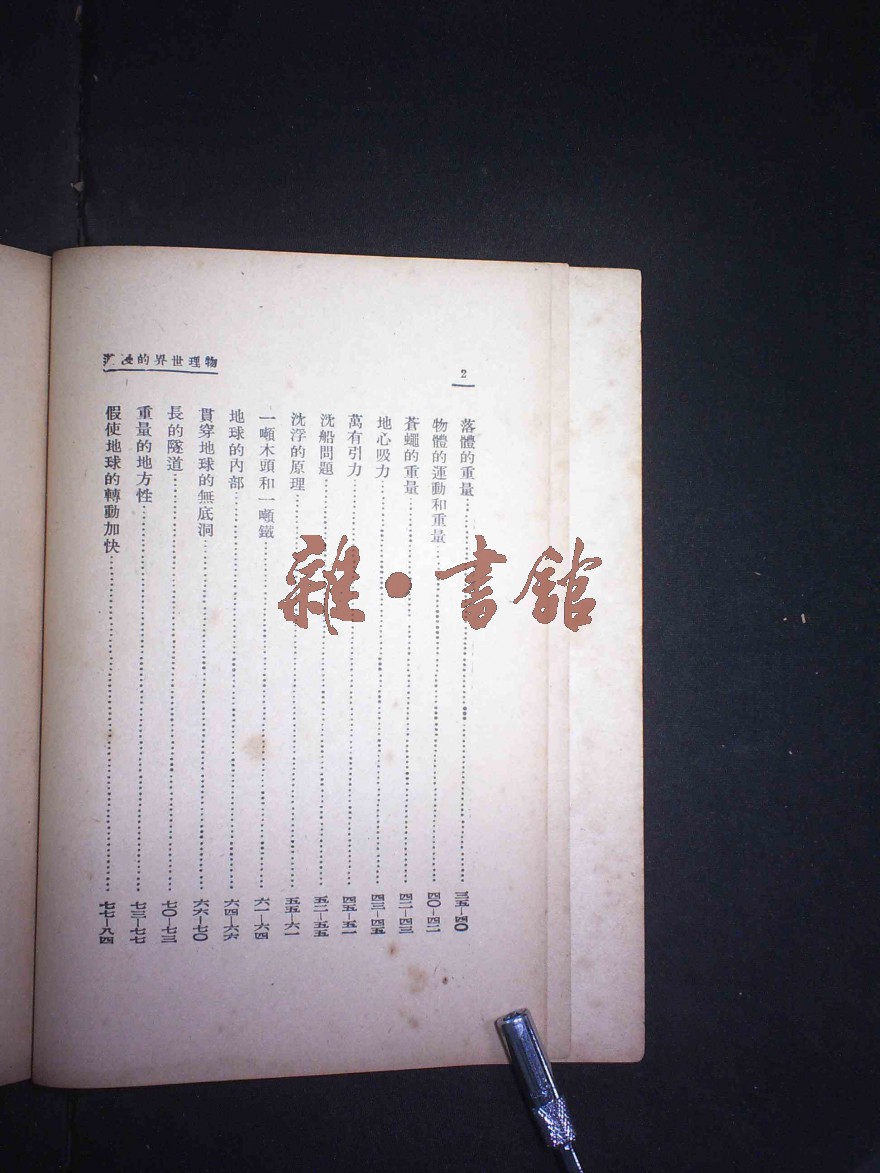 2
物理世界的
落體的重量……三五—四〇
物體的運動和重量……四〇—四二
蒼蠅的重量……四二—四三
地心吸力……四三—四五
萬有引力……四五—五一
沈船問題……五二—五五
沈浮的原理……五五—六一
一噸木頭和一噸鐵……六一—六四
地球的內部……六四—六六
貫穿地球的無底洞……六六—七〇
長的隧道……七〇—七三
重量的地方性……七三—七七
假使地球的轉動加快……七七—八四
雜·書館